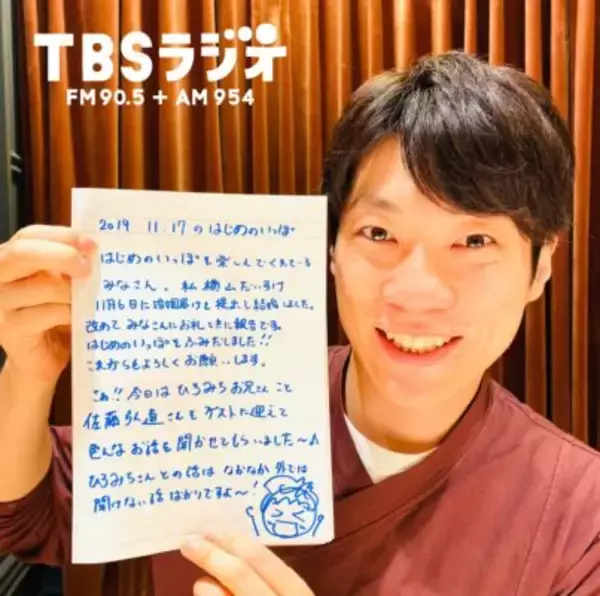 TBSラジオ
FM90.5+AM954
2019 11.17 のはじめのいっぽ
はじめのいっぽを楽しんでくれている
みなさん。私 横山だいすけ
11月6日に婚姻届けを提出し結婚しました。
改めて みなさんにお礼と共に報告です。
はじめのいっぽをふみだしました!!
これからもよろしくお願いします。
さぁ!! 今日は ひろみちお兄さん こと
佐藤弘道さんを ゲストに迎えて
色んなお話を聞かせてもらいました〜♪
ひろみちさんとの話は なかなか 外では
聞けない話ばかりですよ〜!